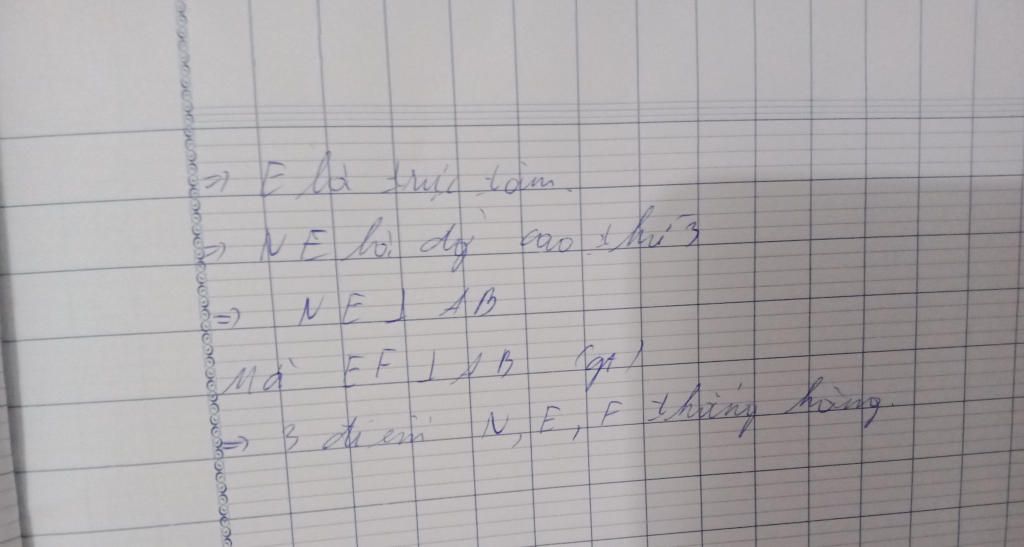 => E là trực tâm.
=> NE là đg cao thứ 3
=> NE ⊥ AB
Mà EF ⊥ AB (gt)
=> 3 điểm N, E, F thẳng hàng.